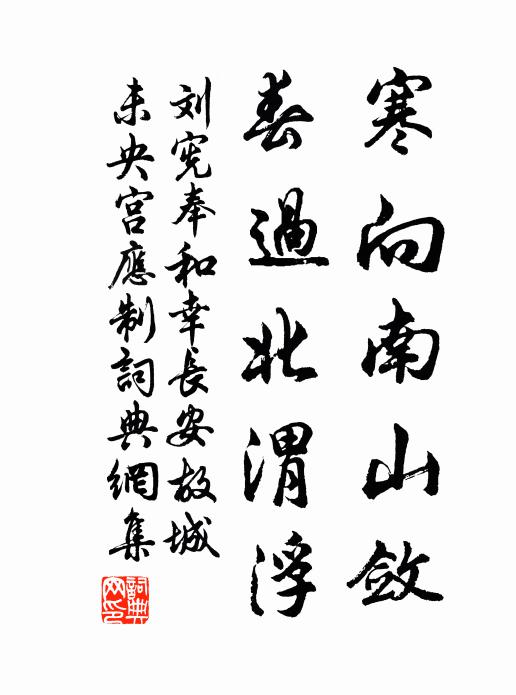 寒向南山斂
春過北渭浮
刘宪奉和幸長安故城
未央宫應制詞典網集
詞典
网印